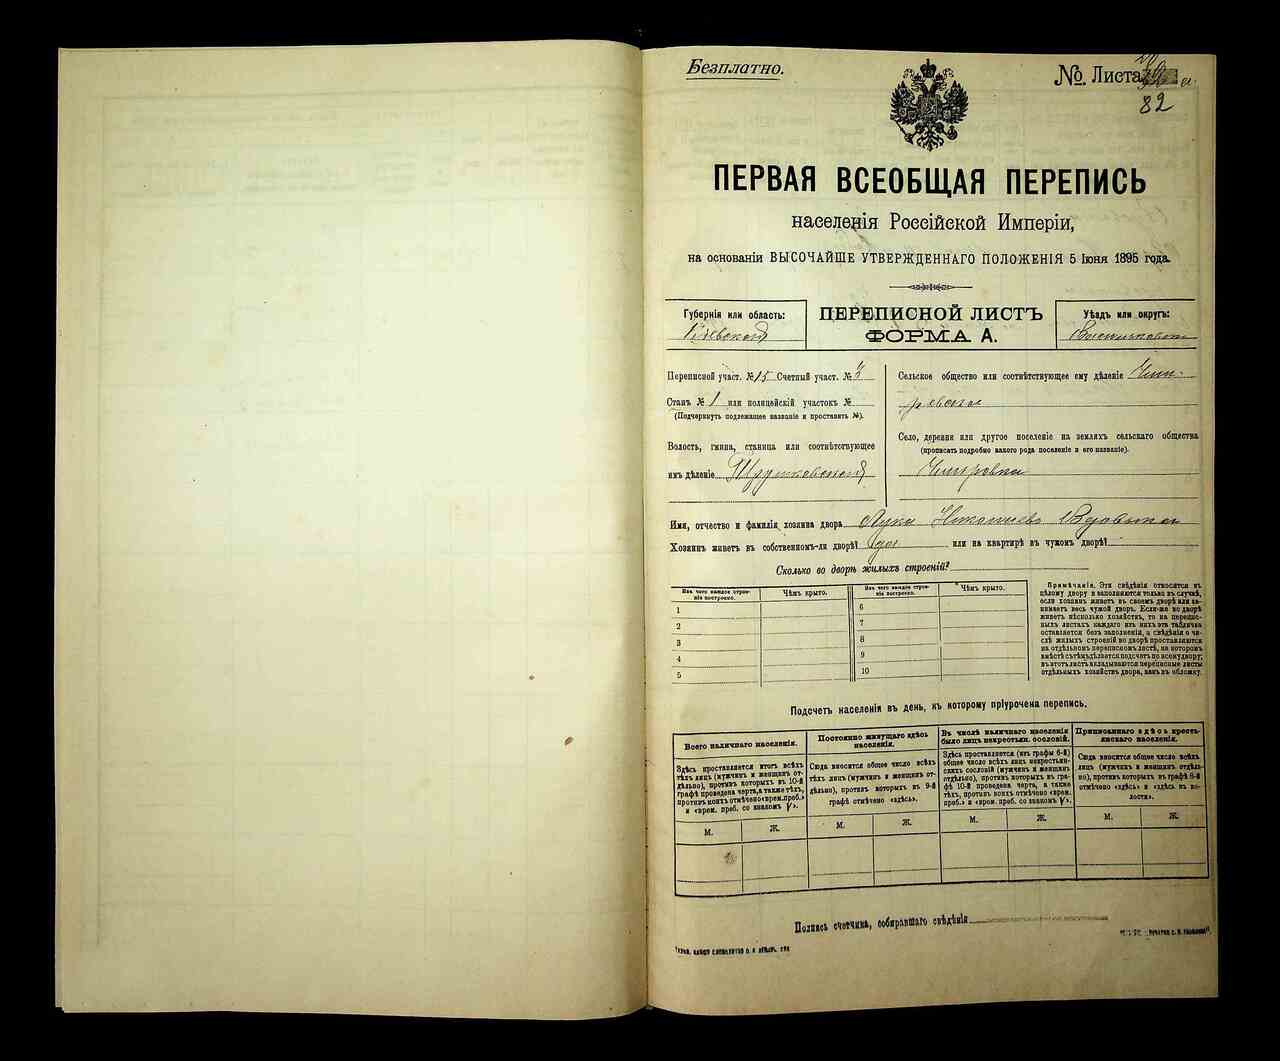 Безплатно.
№ Листа
82
ПЕРВАЯ ВСЕОБЩАЯ ПЕРЕПИСЬ
населенія Россійской Имперіи,
на основаніи ВЫСОЧАЙШЕ УТВЕРЖДЕННАГО ПОЛОЖЕНІЯ 5 Іюня 1895 года.
Губернія или область:
Кіевской
ПЕРЕПИСНОЙ ЛИСТЪ
ФОРМА А.
Уѣздъ или округъ:
Васильковскій
Переписной участ. № 15 Счетный участ. № 3
Станъ № 1 или полицейскій участокъ №
(Подчеркнуть подлежащее названіе и проставить №).
Волость, гмина, станица или соотвѣтствующее
имъ дѣленіе
Сельское общество или соотвѣтствующее ему дѣленіе
Село, деревня или другое поселеніе на земляхъ сельскаго общества
(прописать подробно какого рода поселеніе и его названіе).
Имя, отчество и фамилія хозяина двора Лука
Хозяинъ живетъ въ собственномъ-ли дворѣ? да или на квартирѣ въ чужомъ дворѣ?
Сколько во дворѣ жилыхъ строеній?
Изъ чего каждое строеніе построено.
Чѣмъ крыто.
Изъ чего каждое строеніе построено.
Чѣмъ крыто.
1
2
3
4
5
6
7
8
9
10
Примѣчаніе. Эти свѣдѣнія относятся къ
цѣлому двору и заполняются только въ случаѣ,
если хозяинъ живетъ въ своемъ дворѣ или занимаетъ
весь чужой дворъ. Если-же во дворѣ
живетъ нѣсколько хозяйствъ, то на переписныхъ
листахъ каждаго изъ нихъ эта табличка
оставляется безъ заполненія, а свѣдѣнія о числѣ
жилыхъ строеній во дворѣ проставляются
на отдѣльномъ переписномъ листѣ, на которомъ
вмѣстѣ съ тѣмъ дѣлается подсчетъ по всему двору;
въ этотъ листъ вкладываются переписные листы
отдѣльныхъ хозяйствъ двора, какъ въ обложку.
Подсчетъ населенія въ день, къ которому пріурочена перепись.
Всего наличнаго населенія.
Здѣсь проставляется итогъ всѣхъ
тѣхъ лицъ (мужчинъ и женщинъ отдѣльно),
противъ которыхъ въ 10-й
графѣ проведена черта, а также тѣхъ,
противъ коихъ отмѣчено «врем. преб.»
и «врем. преб. со знакомъ V».
Постоянно живущаго здѣсь
населенія.
Сюда вносится общее число всѣхъ
тѣхъ лицъ (мужчинъ и женщинъ отдѣльно),
противъ которыхъ въ 9-й
графѣ отмѣчено «здѣсь».
Въ числѣ наличнаго населенія
было лицъ некрестьян. сословій.
Здѣсь проставляется (изъ графы 6-й)
общее число всѣхъ лицъ некрестьянскихъ
сословій (мужчинъ и женщинъ
отдѣльно), противъ которыхъ въ графѣ
10-й проведена черта, а также
тѣхъ, противъ коихъ отмѣчено «врем.
преб.» и «врем. преб. со знакомъ V».
Приписаннаго здѣсь крестьянскаго
населенія.
Сюда вносится общее число всѣхъ
лицъ (мужчинъ и женщинъ отдѣльно),
противъ которыхъ въ графѣ 8-й
отмѣчено «здѣсь» и «здѣсь въ волости».
М. Ж. М. Ж. М. Ж. М. Ж.
Подпись счетчика, собиравшаго свѣдѣнія